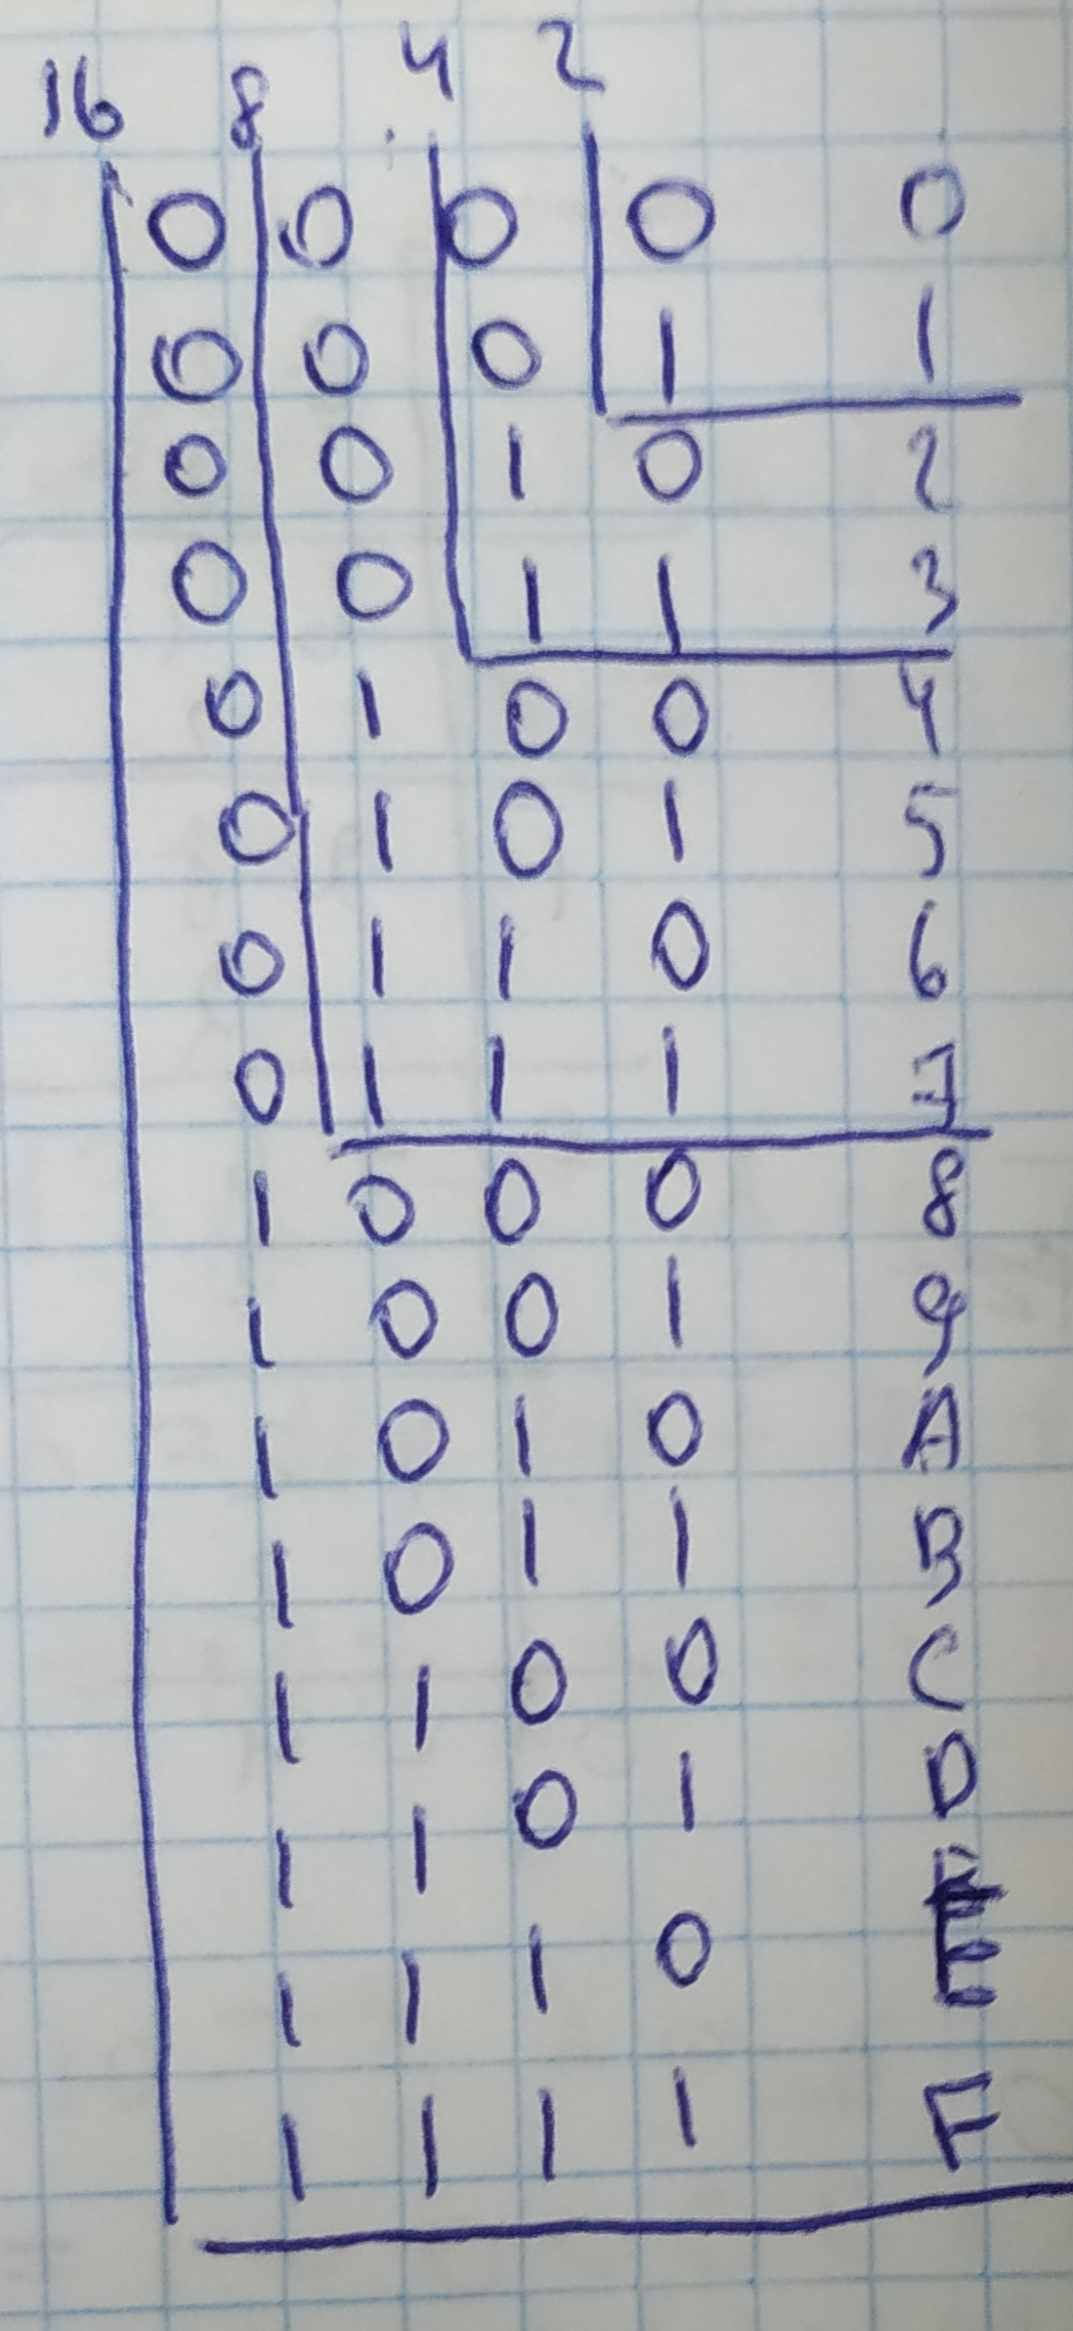 16 8 4 2
0 0 0 0 0
0 0 0 1 1
0 0 1 0 2
0 0 1 1 3
0 1 0 0 4
0 1 0 1 5
0 1 1 0 6
0 1 1 1 7
1 0 0 0 8
1 0 0 1 9
1 0 1 0 A
1 0 1 1 B
1 1 0 0 C
1 1 0 1 D
1 1 1 0 E
1 1 1 1 F